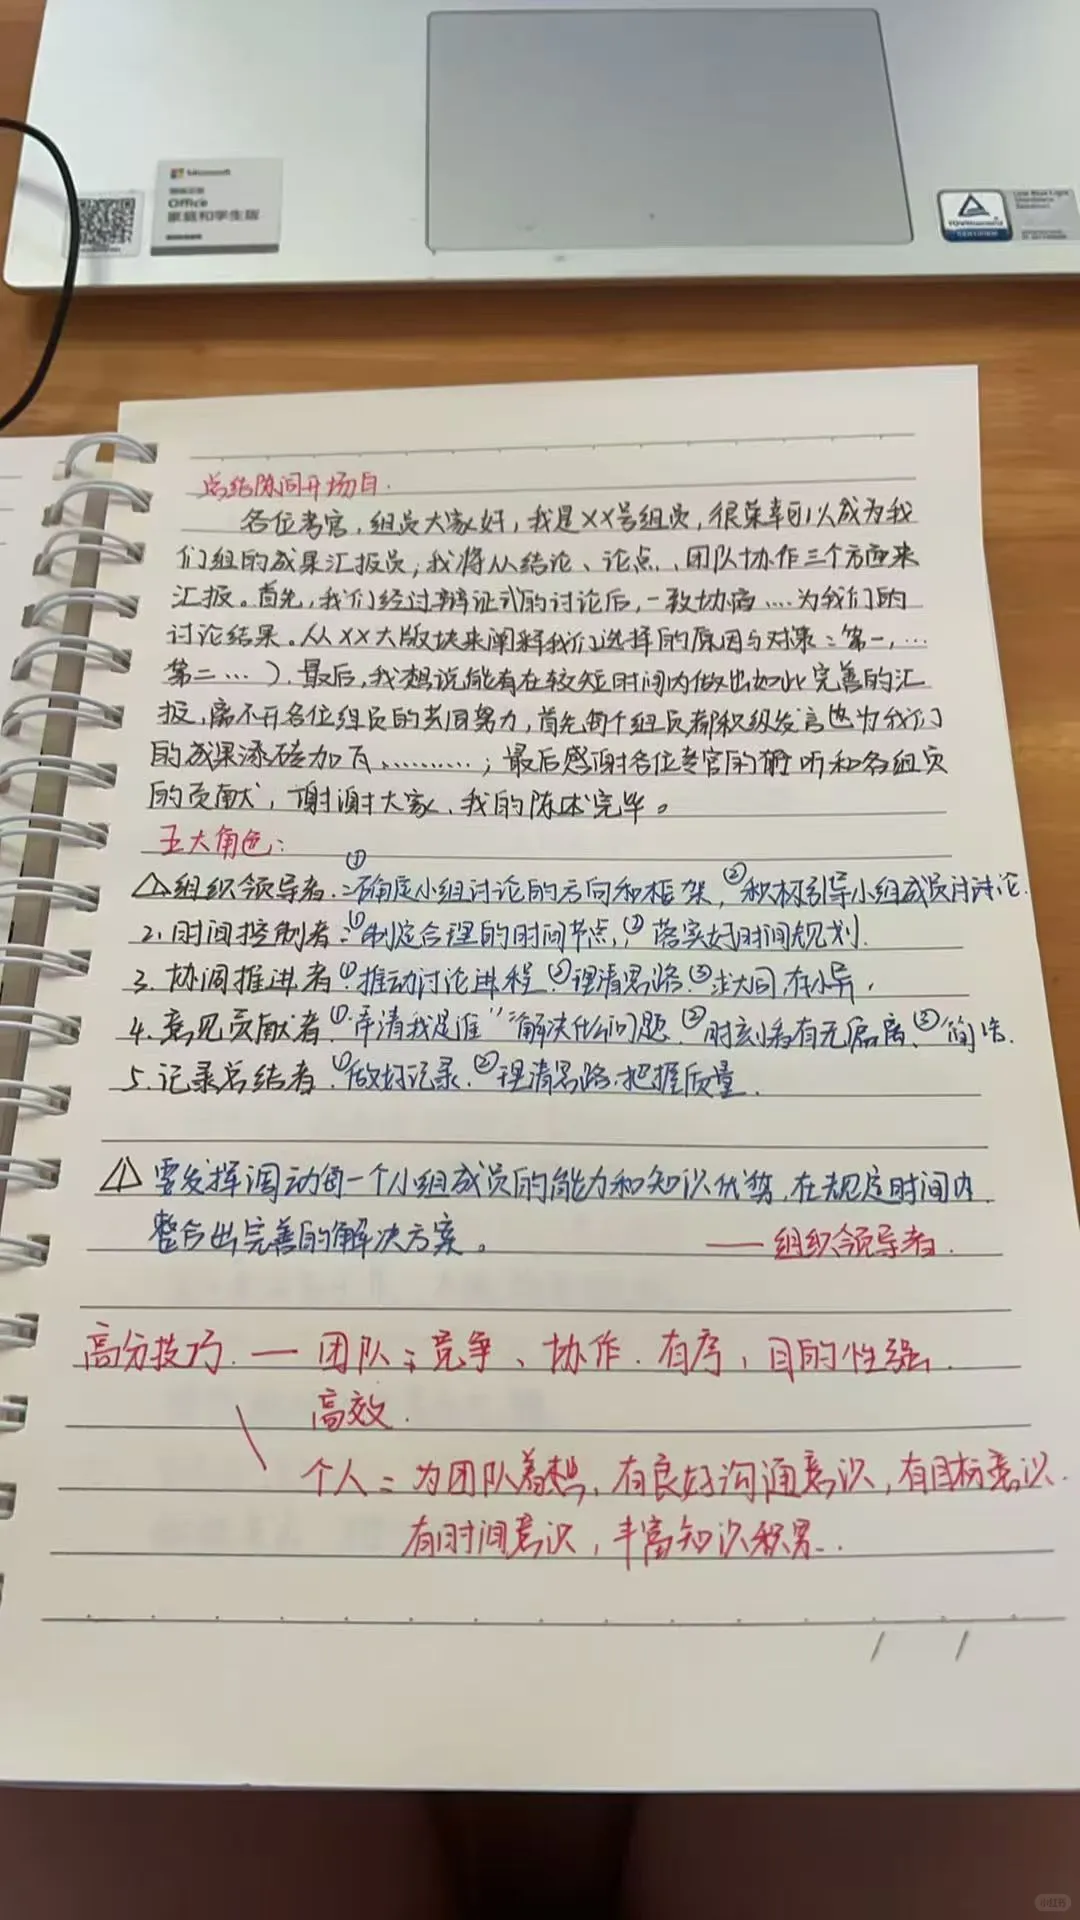 Microsoft
Office
家庭和学生版
TÜVRheinland
CERTIFIED
总结陈词开场白.
各位考官,组员大家好,我是XX号组员,很荣幸可以成为我
们组的成果汇报员,我将从结论、论点、团队协作三个方面来
汇报。首先,我们经过辩证式的讨论后,一致协商....为我们的
讨论结果。从XX大版块来阐释我们选择的原因与对策:第一,...
第二...).最后,我想说能有在较短时间内做出如此完善的汇
报,离不开各位组员的共同努力,首先每个组员都积极发言也为我们
的成果添砖加瓦..........;最后感谢各位考官的聆听和各组员
的贡献,谢谢大家、我的陈述完毕。
五大角色:
1.组织领导者:①确定小组讨论的方向和框架,②积极引导小组成员讨论.
2.时间控制者:①制定合理的时间节点,②落实好时间规划.
3.协调推进者①推动讨论进程②理清思路③求大同,存小异,
4.意见贡献者①弄清我是谁"解决什么问题②时刻看有无偏离、③简洁.
5.记录总结者①做好记录.②理清思路.把握质量.
要发挥调动每一个小组成员的能力和知识优势,在规定时间内
整合出完善的解决方案。 ——组织领导者.
高分技巧.—团队:竞争、协作.有序,目的性强.
高效.
个人:为团队着想,有良好沟通意识,有目标意识.
有时间意识,丰富知识积累...